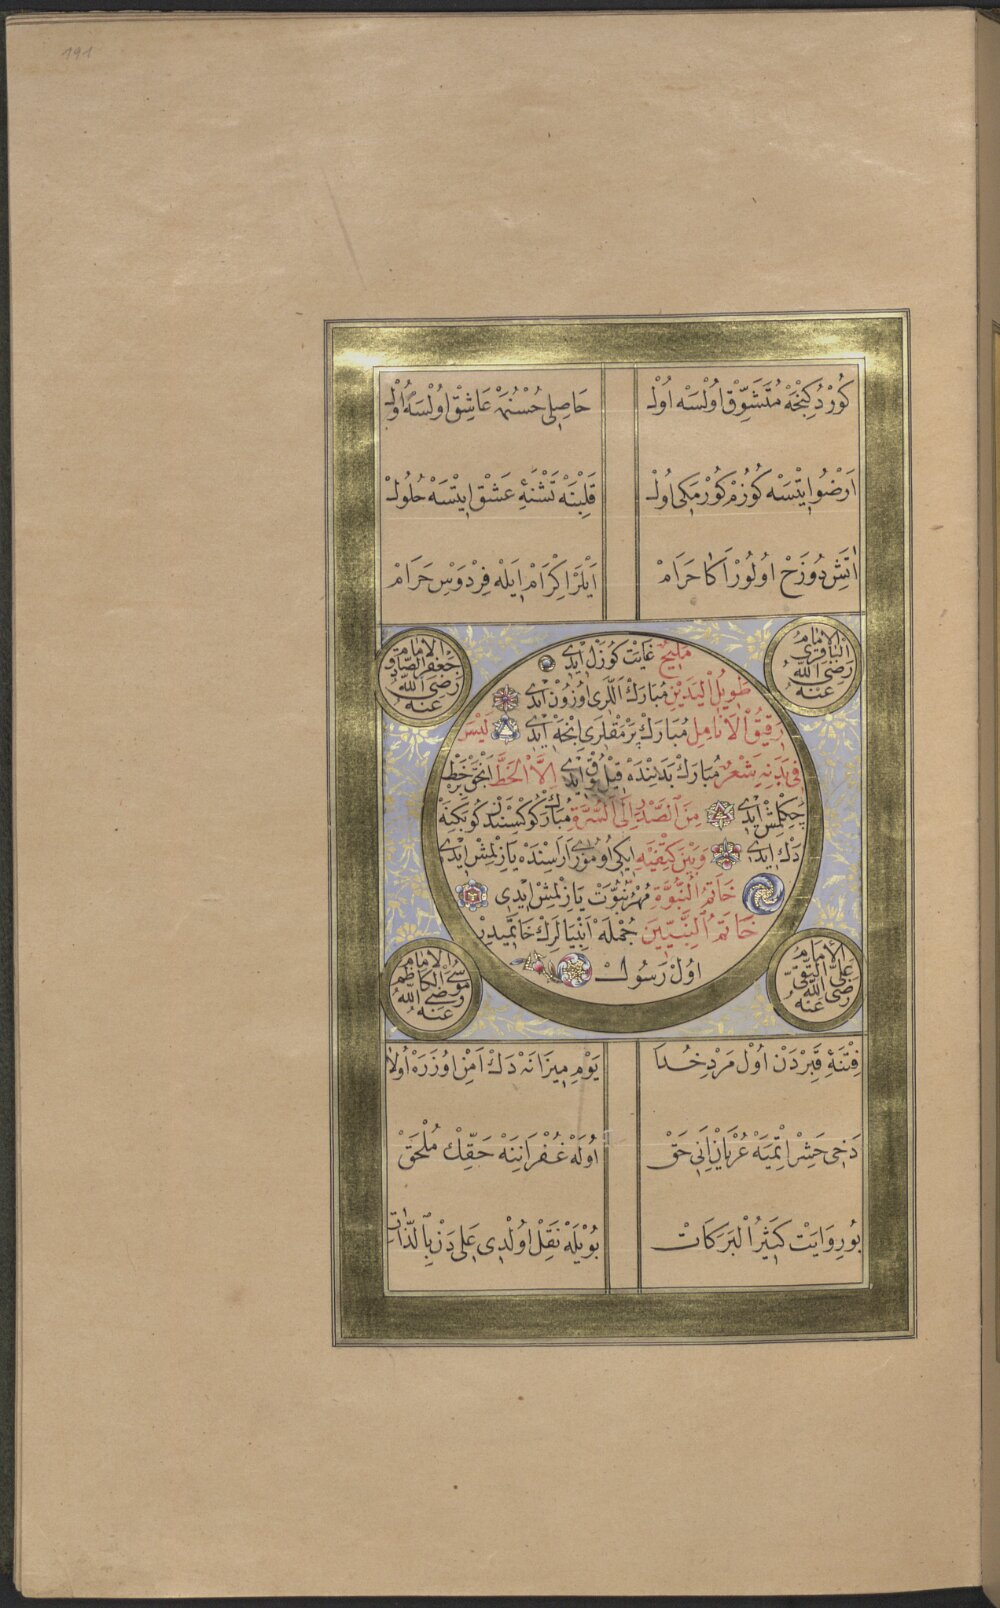 191
كُورْدُكِنْجَهْ مُتَشَوِّقْ اُولْسَه اُولْ حَاصِلِي حُسْنُمَه عَاشِقْ اُولْسَه اُولْ
اَرْضُو اِيتْسَه كُوزُمْ كُورْمَكِي اُولْ قَلْبِنَه تَشْنَهِٔ عَشْق اِيتْسَه حُلُولْ
اٰتَشِ دُوزَحْ اُولُورْ اَكَا حَرَامْ اَيْلَرَ اِكْرَامْ اَيلَه فِرْدَوْسِ حَرَامْ
اَلْاِمَامُ الْبَاقِرِي رَضِيَ اللّٰه عَنْهُ
اَلْاِمَامُ جَعْفَرُ الصَّادِقُ رَضِيَ اللّٰه عَنْهُ
مَلِيحٌ غَايَتْ كُوزَلْ اِيدِي
طَوِيلُ الْيَدَيْنِ مُبَارَكْ اَلْلَرِي اُوزُونْ اِيدِي
رَقِيقُ الْاَنَامِلِ مُبَارَكْ پَرْمَقْلَرِي اِنْجَه اِيدِي لَيْسَ
فِي بَدَنِهِ شَعْرٌ مُبَارَكْ بَدَنِنْدَه قِيلْ يُوقْ اِيدِي اِلَّا الْخَطَّ اَنْجَقْ بَرْ خَطْ
چَكِلْمِشْ اِيدِي مِنَ الصَّدْرِ اِلَى السُّرَّةِ مُبَارَكْ كُوكْسِنْدَنْ كُوبَكِنَه
دَكْ اِيدِي وَبَيْنَ كَتِفَيْهِ اِيكِي اُومُوزِي اَرَاسِنْدَه يَازِلْمِشْ اِيدِي
خَاتَمُ النُّبُوَّةِ مُهْرِ نُبُوَّتْ يَازِلْمِشْ اِيدِي
خَاتَمُ النَّبِيِّينَ جُمْلَه اَنْبِيَالَرِكْ خَاتَمِيدِرْ
اُولْ رَسُولْ
اَلْاِمَامُ عَلِيُّ التَّقِيُّ رَضِيَ اللّٰه عَنْهُ
اَلْاِمَامُ مُوسَى الْكَاظِمُ رَضِيَ اللّٰه عَنْهُ
فِتْنَهِٔ قَبِرْدَنْ اُولْ مَرْدِ خُدَا يَوْمِ مِيزَانَه دَكْ اَمْن اُوزَرَه اُولَا
دَخِي حَشْر اِتْمِيَه عُرْيَان اَنِي حَقْ اُولَه غُفْرَانِنَه حَقِّكْ مُلْحَقْ
بُو رِوَايَتْ كَثِيرُ الْبَرَكَاتْ بُويْلَه نَقِلْ اُولْدِي عَلِي دَنْ بِالذَّاتِ